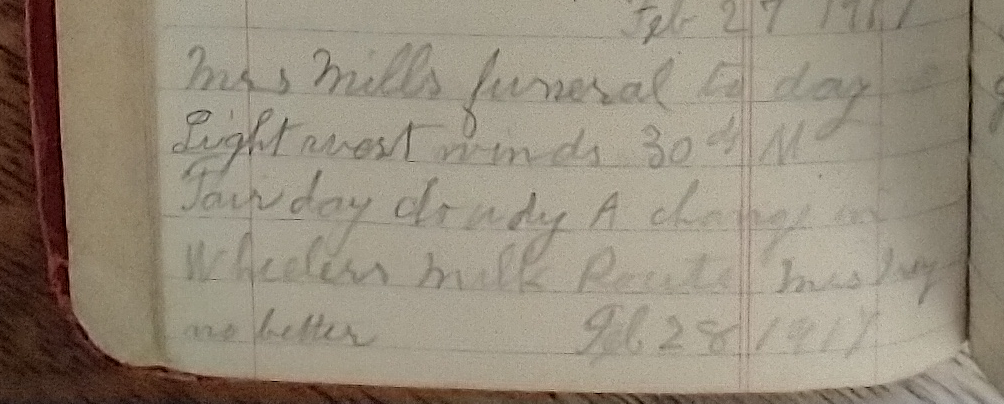 Feb 27 1917
Mrs Mills funeral to day
Light west winds 30 ds M
Fair day cloudy A change in
Wheelers milk Route Mrs
no better Feb 28 1917